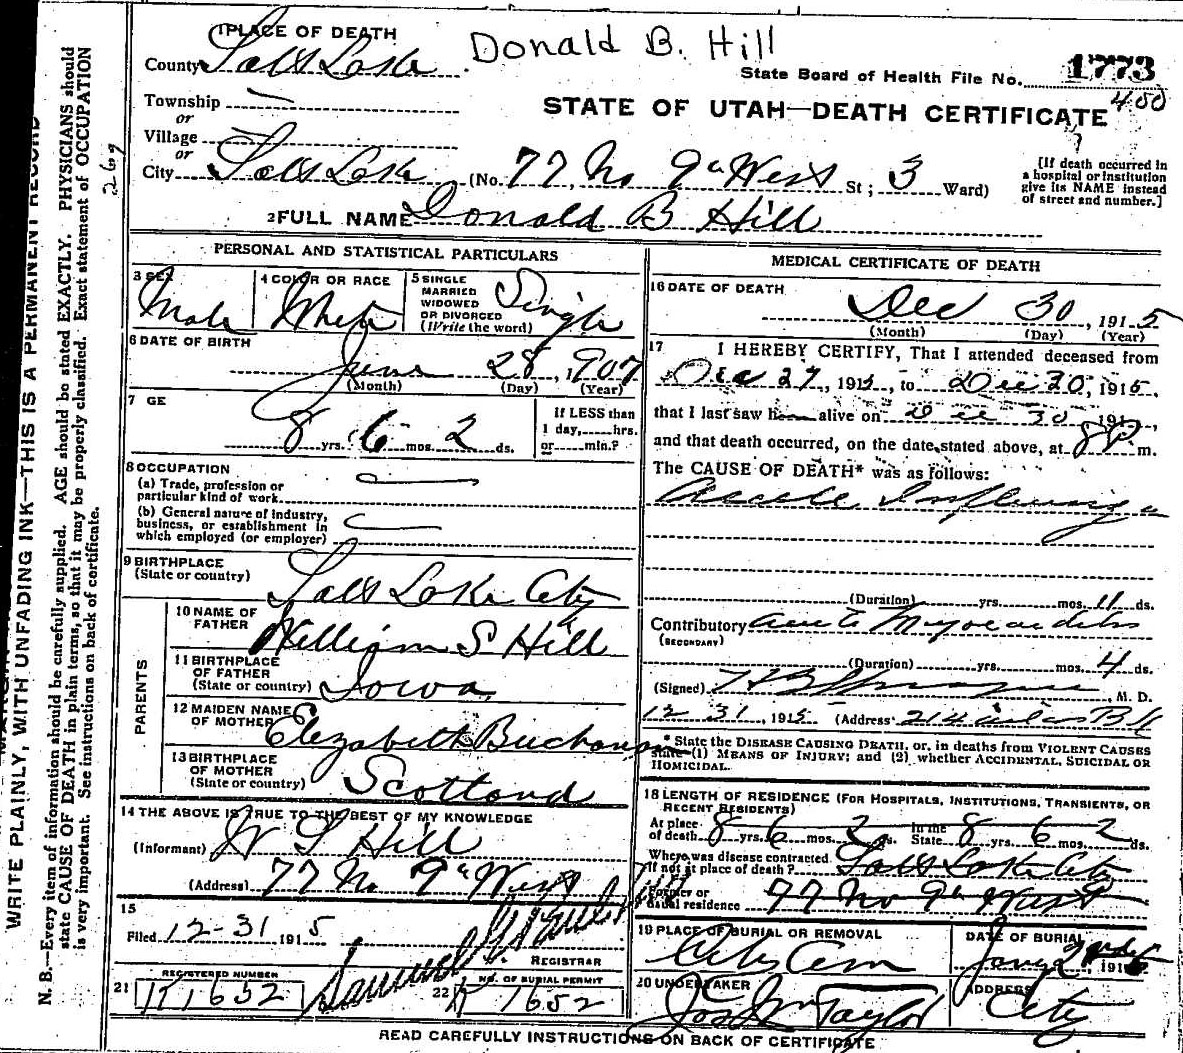 Donald B. Hill
1 PLACE OF DEATH
County Salt Lake
State Board of Health File No. 1773
400
Township —
or
STATE OF UTAH—DEATH CERTIFICATE
Village
or
City Salt Lake (No. 77 No 9th West St; 3 Ward)
[If death occurred in
a hospital or institution
give its NAME instead
of street and number.]
2 FULL NAME Donald B Hill
PERSONAL AND STATISTICAL PARTICULARS
3 SEX
Male
4 COLOR OR RACE
White
5 SINGLE
MARRIED
WIDOWED
OR DIVORCED
(Write the word)
Single
6 DATE OF BIRTH
June 28, 1907
(Month) (Day) (Year)
7 GE
8 yrs. 6 mos. 2 ds.
If LESS than
1 day, hrs.
or min.?
8 OCCUPATION
(a) Trade, profession or
particular kind of work
(b) General nature of industry,
business, or establishment in
which employed (or employer)
9 BIRTHPLACE
(State or country) Salt Lake City
PARENTS
10 NAME OF
FATHER William S Hill
11 BIRTHPLACE
OF FATHER
(State or country) Iowa
12 MAIDEN NAME
OF MOTHER Elizabeth Buchanan
13 BIRTHPLACE
OF MOTHER
(State or country) Scotland
14 THE ABOVE IS TRUE TO THE BEST OF MY KNOWLEDGE
(Informant) W S Hill
(Address) 77 No 9th West
15
Filed 12-31 1915
REGISTRAR
REGISTERED NUMBER
21 K1652
22 NO. OF BURIAL PERMIT
K 1652
MEDICAL CERTIFICATE OF DEATH
16 DATE OF DEATH
Dec 30, 1915
(Month) (Day) (Year)
17 I HEREBY CERTIFY, That I attended deceased from
Dec 27, 1915, to Dec 30, 1915,
that I last saw h alive on Dec 30 191,
and that death occurred, on the date stated above, at 8 P. m.
The CAUSE OF DEATH* was as follows:
Acute Influenza
(Duration) yrs. mos. 11 ds.
Contributory Acute Myocarditis
(SECONDARY)
(Duration) yrs. mos. 4 ds.
(Signed) M. D.
12 31, 1915 (Address) 214
* State the DISEASE CAUSING DEATH, or, in deaths from VIOLENT CAUSES
state (1) MEANS OF INJURY; and (2) whether ACCIDENTAL, SUICIDAL OR
HOMICIDAL.
18 LENGTH OF RESIDENCE (FOR HOSPITALS, INSTITUTIONS, TRANSIENTS, OR
RECENT RESIDENTS)
At place
of death 8 yrs. 6 mos. 2 ds. In the State 8 yrs. 6 mos. 2 ds.
Where was disease contracted
If not at place of death? Salt Lake City
Former or
usual residence 77 No 9th West
19 PLACE OF BURIAL OR REMOVAL
City Cem
DATE OF BURIAL
20 UNDERTAKER
Jos Wm Taylor
ADDRESS
City
READ CAREFULLY INSTRUCTIONS ON BACK OF CERTIFICATE
WRITE PLAINLY, WITH UNFADING INK—THIS IS A PERMANENT RECORD
N. B.—Every item of information should be carefully supplied. AGE should be stated EXACTLY. PHYSICIANS should
state CAUSE OF DEATH in plain terms, so that it may be properly classified. Exact statement of OCCUPATION
is very important. See instructions on back of certificate.
269